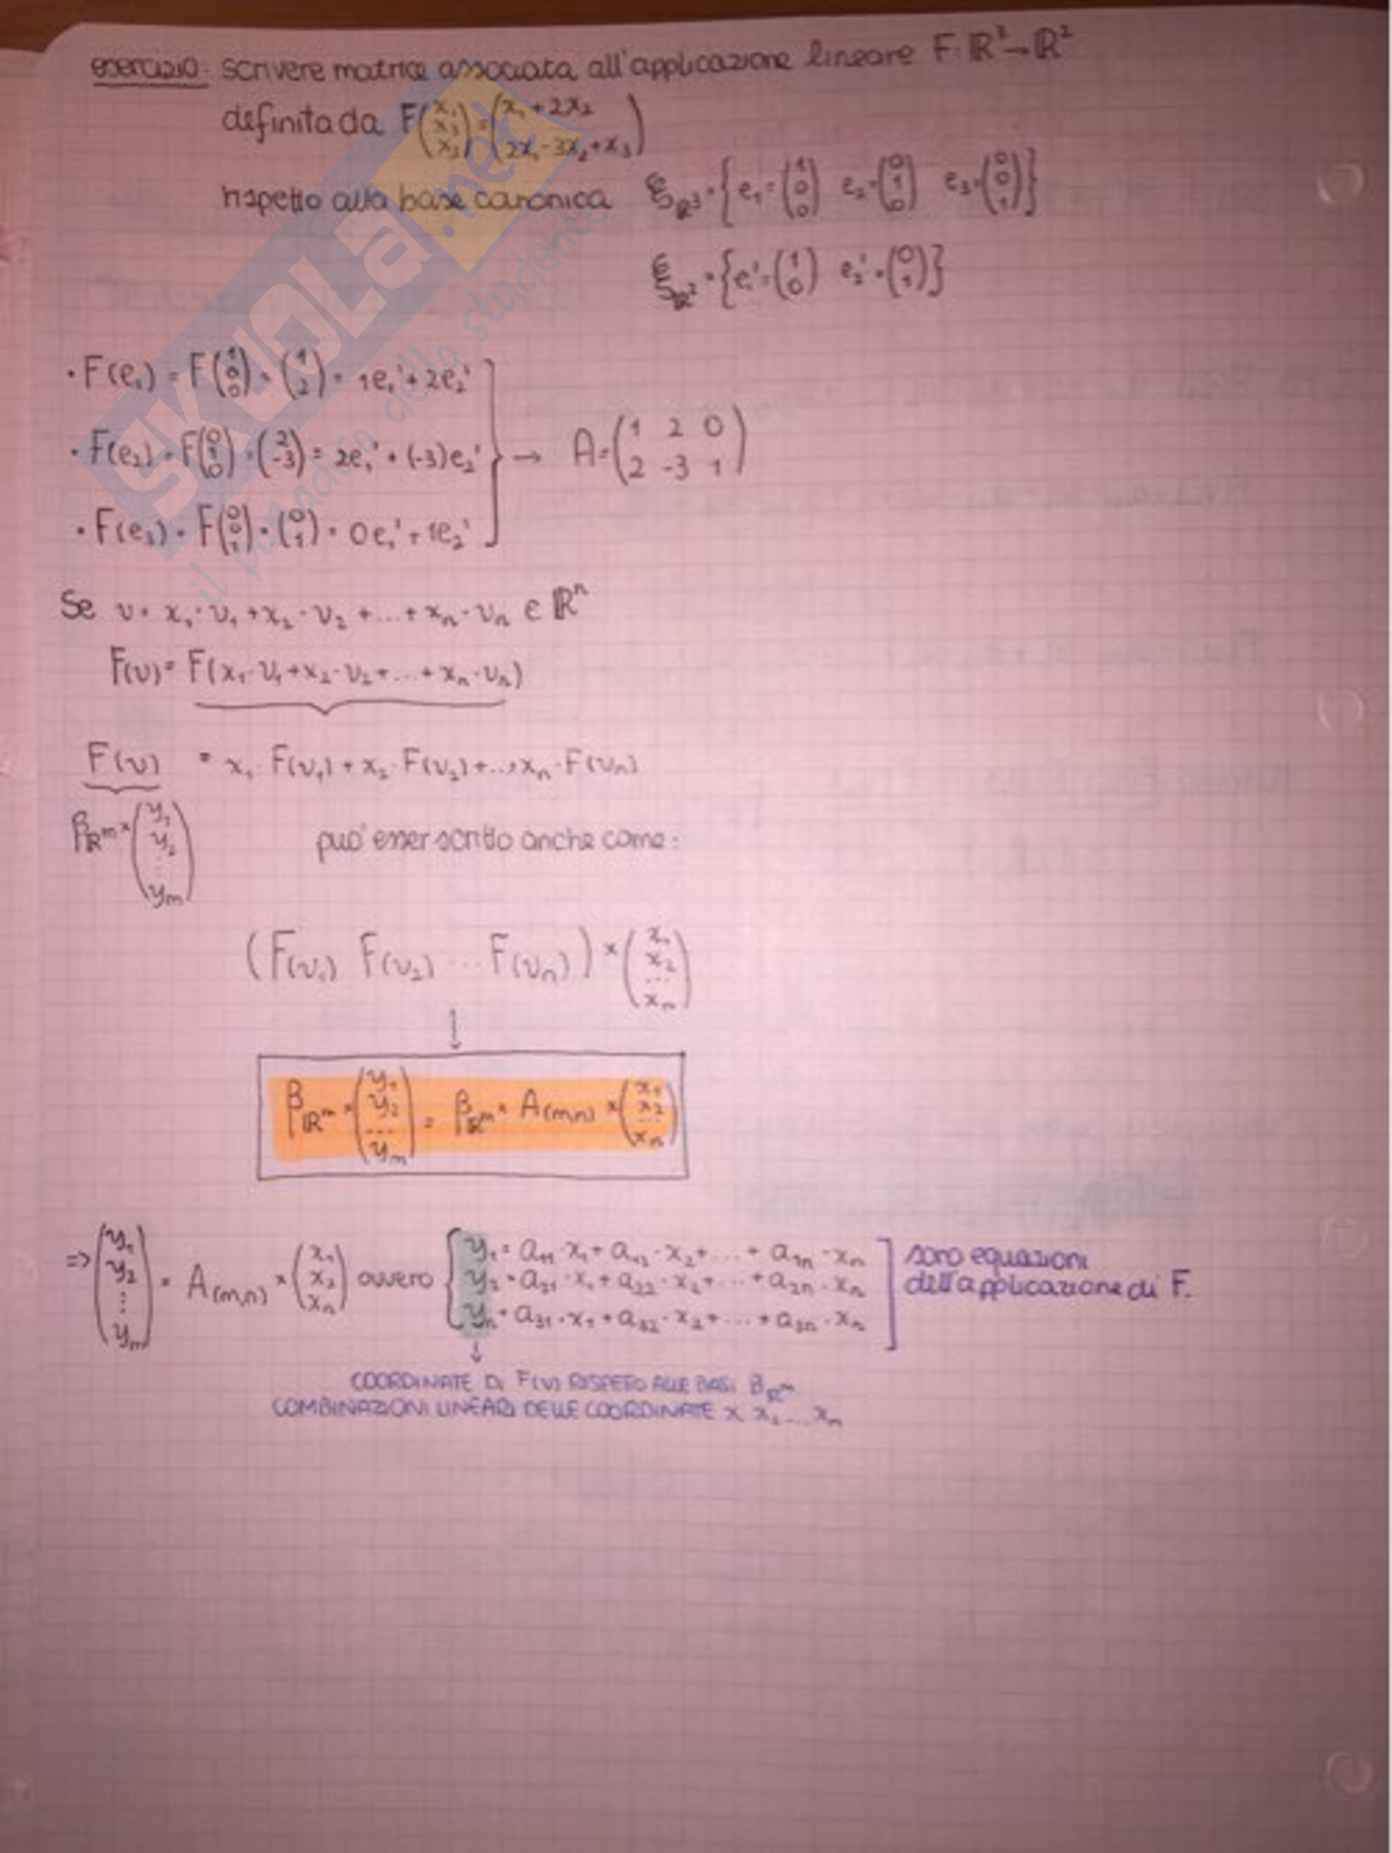 esercizio: scrivere matrice associata all'applicazione lineare F: ℝ³→ℝ²
definita da F(x₁ x₂ x₃) = (x₁+2x₂ / 2x₁-3x₂+x₃)
rispetto alla base canonica ξ_ℝ³ = {e₁=(1 0 0) e₂=(0 1 0) e₃=(0 0 1)}
ξ_ℝ² = {e₁'=(1 0) e₂'=(0 1)}
· F(e₁) = F(1 0 0) = (1 2) = 1e₁'+2e₂'
· F(e₂) = F(0 1 0) = (2 -3) = 2e₁'+(-3)e₂' → A=(1 2 0 / 2 -3 1)
· F(e₃) = F(0 0 1) = (0 1) = 0e₁'+1e₂'
Se v = x₁·v₁+x₂·v₂+...+xₙ·vₙ ∈ ℝⁿ
F(v) = F(x₁·v₁+x₂·v₂+...+xₙ·vₙ)
F(v) = x₁·F(v₁)+x₂·F(v₂)+...+xₙ·F(vₙ)
β_ℝᵐ × (y₁ y₂ ⋮ yₘ) può esser scritto anche come:
(F(v₁) F(v₂) ... F(vₙ)) × (x₁ x₂ ... xₙ)
↓
β_ℝᵐ × (y₁ y₂ ... yₘ) = β_ℝᵐ × A(m,n) × (x₁ x₂ ... xₙ)
=> (y₁ y₂ ⋮ yₘ) = A(m,n) × (x₁ x₂ xₙ) ovvero { y₁ = a₁₁·x₁+a₁₂·x₂+...+a₁ₙ·xₙ
y₂ = a₂₁·x₁+a₂₂·x₂+...+a₂ₙ·xₙ
yₙ = a₃₁·x₁+a₃₂·x₂+...+a₃ₙ·xₙ ]
sono equazioni
dell'applicazione di F.
↓
COORDINATE DI F(V) RISPETO ALLE BASI B_ℝᵐ
COMBINAZIONI LINEARI DELLE COORDINATE x x₂...xₙ
SKUOLA.net
il paradiso dello studente